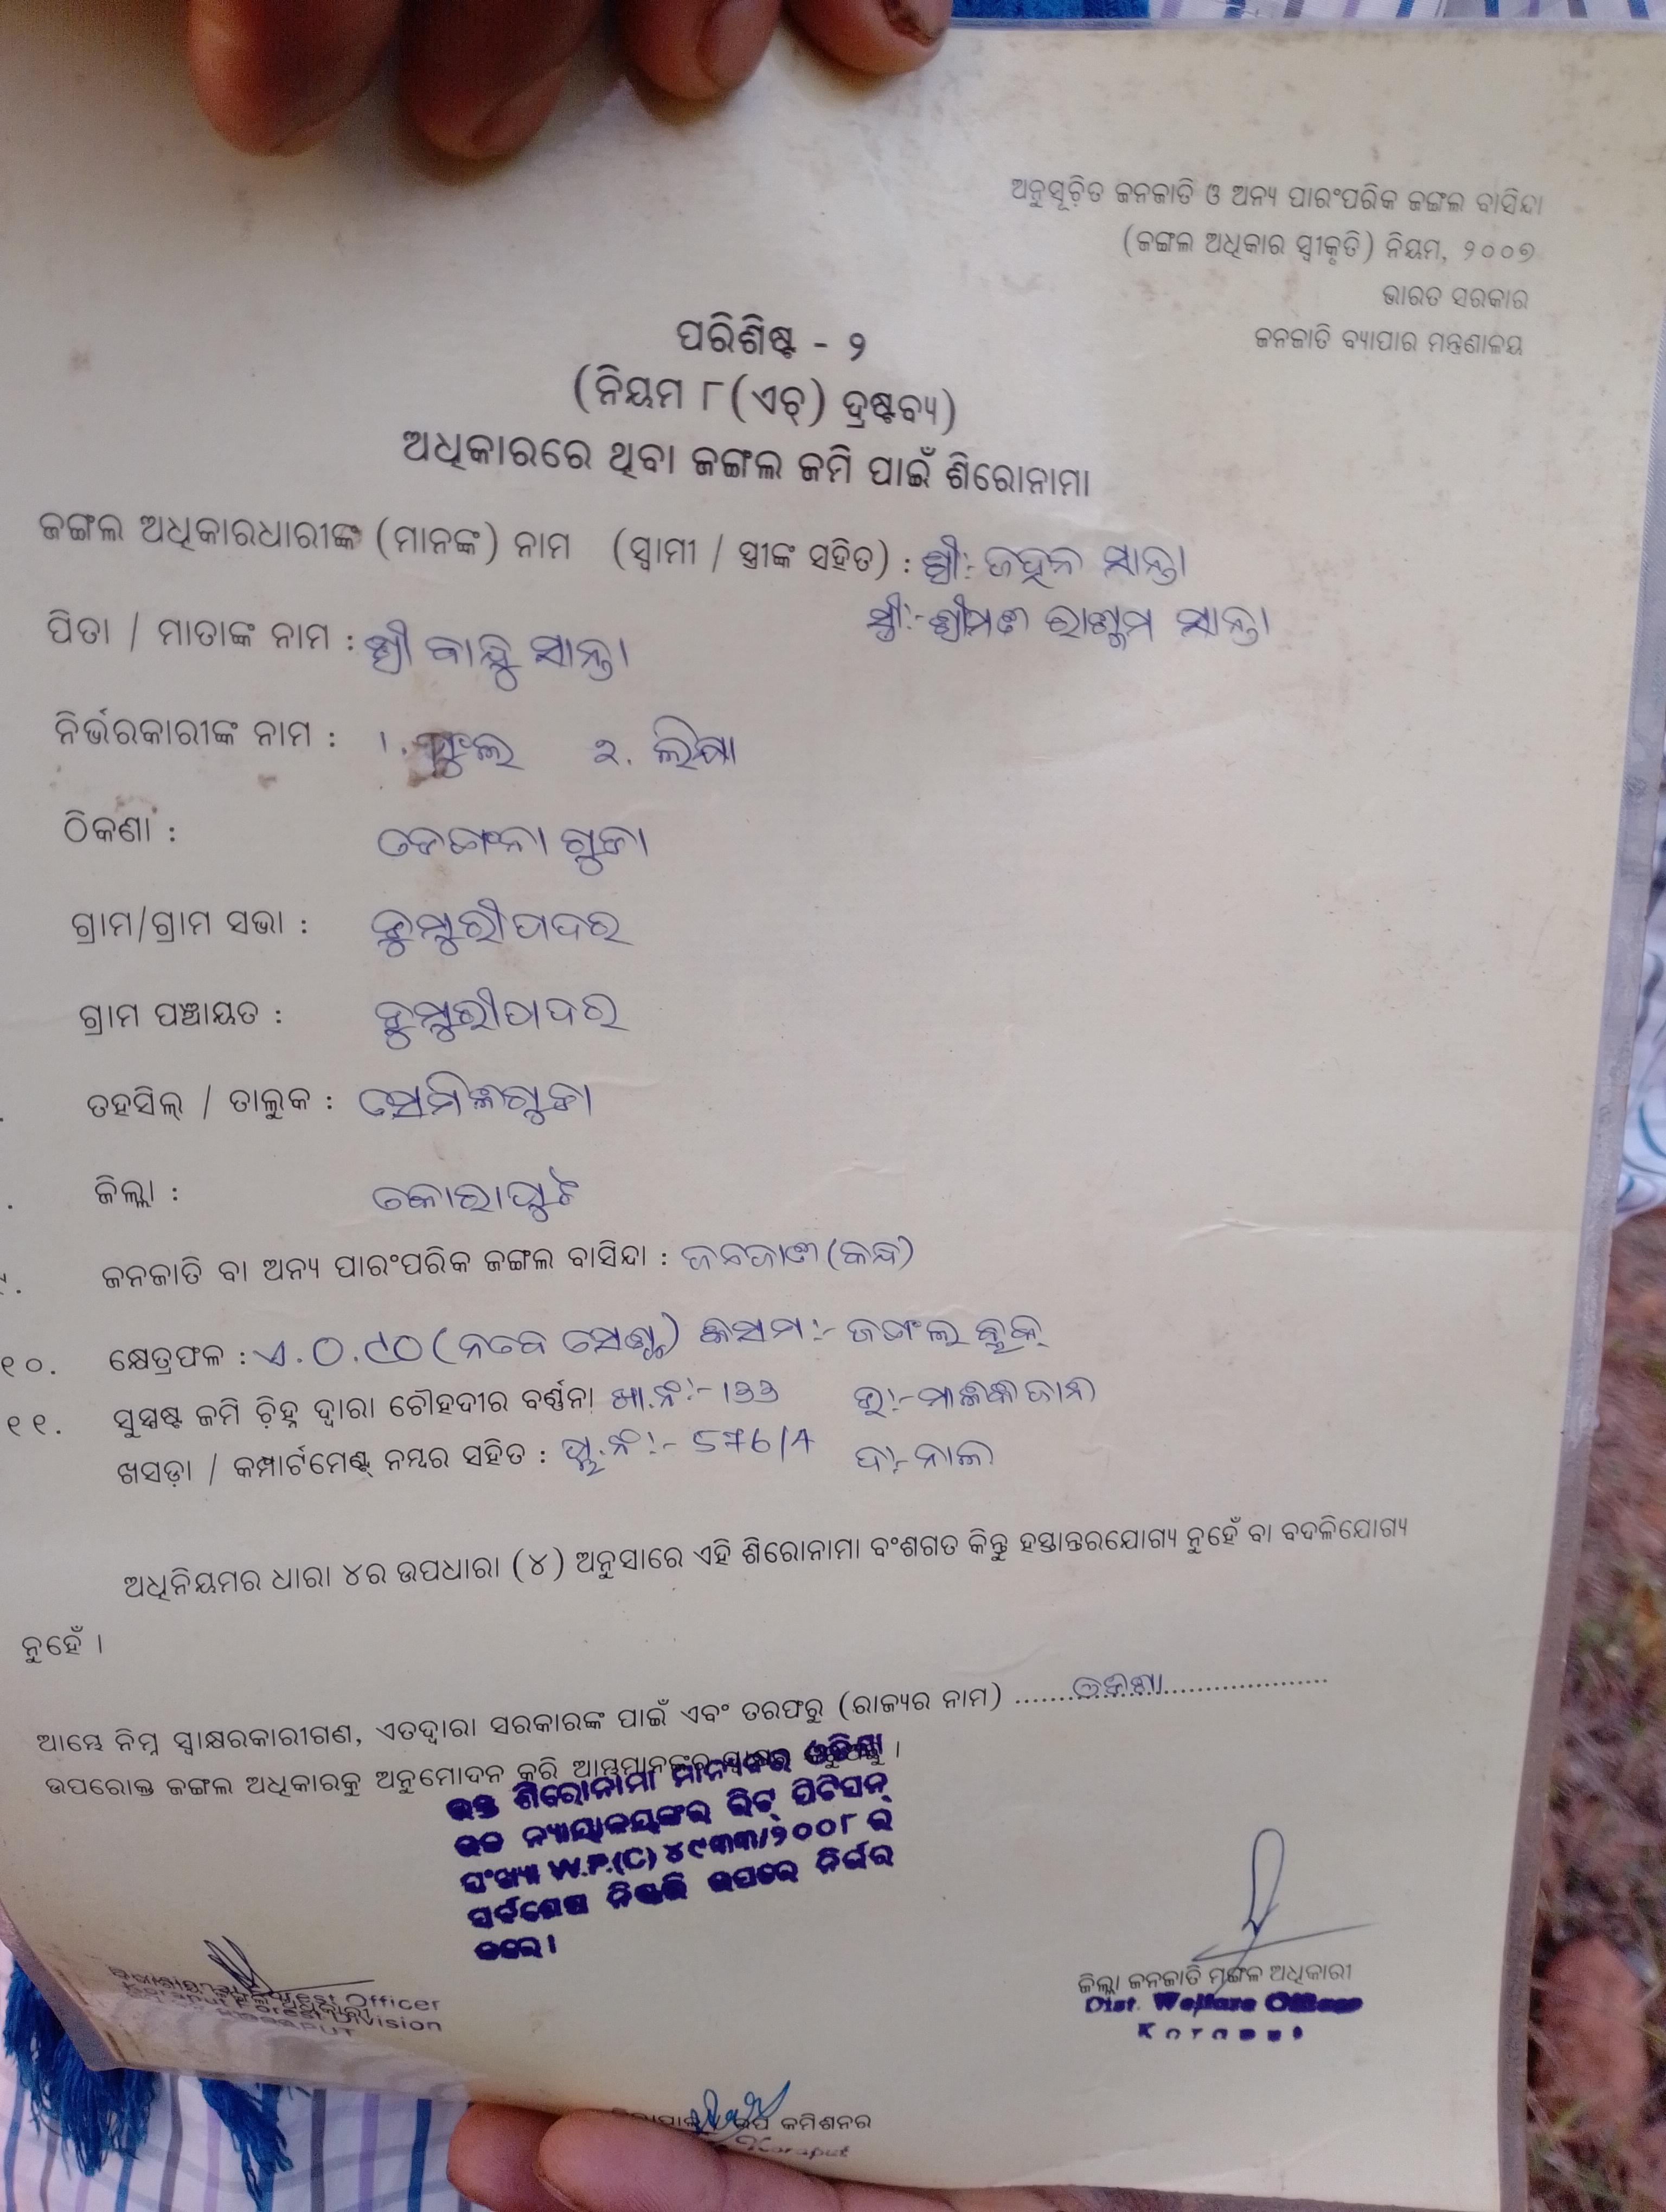 ଅନୁସୂଚିତ ଜନଜାତି ଓ ଅନ୍ୟ ପାରଂପରିକ ଜଙ୍ଗଲ ବାସିନ୍ଦା
(ଜଙ୍ଗଲ ଅଧିକାର ସ୍ୱୀକୃତି) ନିୟମ, ୨୦୦୭
ଭାରତ ସରକାର
ଜନଜାତି ବ୍ୟାପାର ମନ୍ତ୍ରଣାଳୟ
ପରିଶିଷ୍ଟ - ୨
(ନିୟମ ୮(ଏଚ୍) ଦ୍ରଷ୍ଟବ୍ୟ)
ଅଧିକାରରେ ଥିବା ଜଙ୍ଗଲ ଜମି ପାଇଁ ଶିରୋନାମା
ଜଙ୍ଗଲ ଅଧିକାରଧାରୀଙ୍କ (ମାନଙ୍କ) ନାମ (ସ୍ୱାମୀ / ସ୍ତ୍ରୀଙ୍କ ସହିତ) : ଶ୍ରୀ:- ସାନ୍ତା
ସ୍ତ୍ରୀ:- ଶ୍ରୀମତୀ ସାନ୍ତା
ପିତା / ମାତାଙ୍କ ନାମ : ଶ୍ରୀ ସାନ୍ତା
ନିର୍ଭରକାରୀଙ୍କ ନାମ : ୧. ୨.
ଠିକଣା :
ଗ୍ରାମ/ଗ୍ରାମ ସଭା : ଡୁମୁରୀପାଦର
ଗ୍ରାମ ପଞ୍ଚାୟତ : ଡୁମୁରୀପାଦର
ତହସିଲ୍ / ତାଲୁକ : ସେମିଳିଗୁଡା
ଜିଲ୍ଲା : କୋରାପୁଟ
ଜନଜାତି ବା ଅନ୍ୟ ପାରଂପରିକ ଜଙ୍ଗଲ ବାସିନ୍ଦା : ଜନଜାତୀ (କନ୍ଧ)
୧୦. କ୍ଷେତ୍ରଫଳ : ଏ.୦.୯୦ (ନବେ ସେଣ୍ଟ) କିସମ:- ଜଙ୍ଗଲ ବ୍ଲକ୍
୧୧. ସୁସ୍ପଷ୍ଟ ଜମି ଚିହ୍ନ ଦ୍ୱାରା ଚୌହଦୀର ବର୍ଣ୍ଣନା ଖା.ନଂ:- 133
ଖସଡ଼ା / କମ୍ପାର୍ଟମେଣ୍ଟ ନମ୍ବର ସହିତ : ପ୍ଲ.ନଂ:- 576/ ଦ:- ନାଲ
ଅଧିନିୟମର ଧାରା ୪ର ଉପଧାରା (୪) ଅନୁସାରେ ଏହି ଶିରୋନାମା ବଂଶଗତ କିନ୍ତୁ ହସ୍ତାନ୍ତରଯୋଗ୍ୟ ନୁହେଁ ବା ବଦଳିଯୋଗ୍ୟ
ନୁହେଁ ।
ଆମ୍ଭେ ନିମ୍ନ ସ୍ୱାକ୍ଷରକାରୀଗଣ, ଏତଦ୍ୱାରା ସରକାରଙ୍କ ପାଇଁ ଏବଂ ତରଫରୁ (ରାଜ୍ୟର ନାମ) ........
ଉପରୋକ୍ତ ଜଙ୍ଗଲ ଅଧିକାରକୁ ଅନୁମୋଦନ କରି ଆମ୍ଭମାନଙ୍କର
ଉକ୍ତ ଶିରୋନାମା ମାନ୍ୟବର ଓଡିଶା
ଉଚ୍ଚ ନ୍ୟାୟାଳୟଙ୍କର ରିଟ୍ ପିଟିସନ୍
ସଂଖ୍ୟା W.P.(C) ୪୯୩୩/୨୦୦୮ ର
ସର୍ବଶେଷ ନିଷ୍ପତ୍ତି ଉପରେ ନିର୍ଭର
କରେ ।
Divisional Forest Officer
Koraput Forest Division
KORAPUT
ଜିଲ୍ଲା ଜନଜାତି ମଙ୍ଗଳ ଅଧିକାରୀ
Dist. Welfare Officer
Koraput
ଉପ କମିଶନର
Koraput